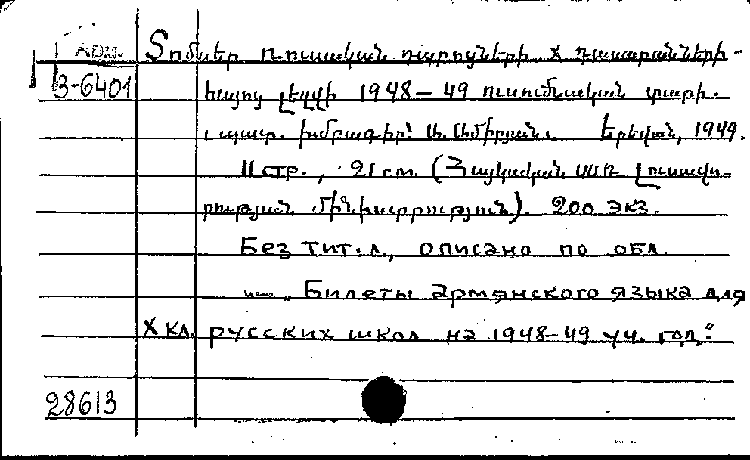 АРМ. Տոմսեր ռուսական դպրոցների X դասարանների
3-6401 հայոց լեզվի 1948-49 ուսումնական տարի.
պատ. խմբագիր՝ Երևան, 1949.
11 стр., 21 см. (Հայկական ՍՍՌ լուսավո-
րության մինիստրություն). 200 экз.
Без тит. л., описано по обл.
"Билеты армянского языка для
X кл. русских школ на 1948-49 уч. год."
28613